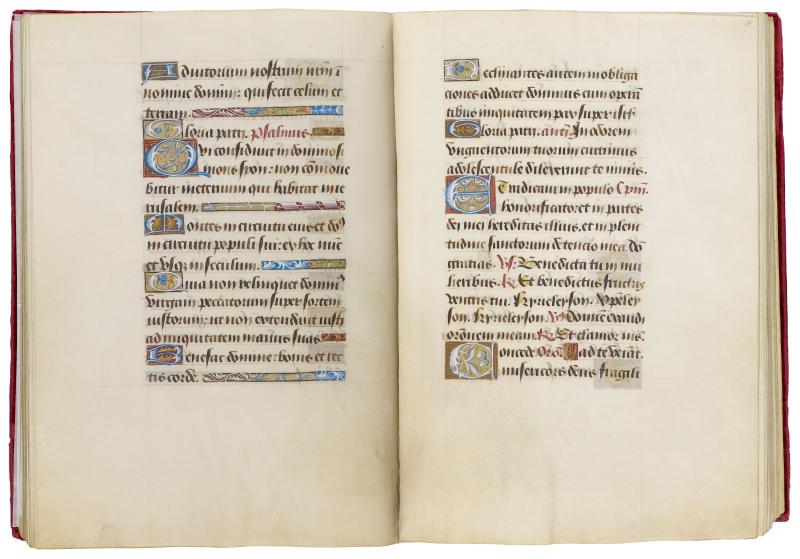 Adiutorium nostrum
nomine domini: qui fecit celum et
terram.
Gloria patri. psalmus.
Qui confidunt in domino s
mons syon: non comoue
bitur ineternum qui habitat ihe
rusalem.
Montes in circuitu eius et
in circuitu populi sui: ex hoc nūc
et vsq; in seculum.
Quia non relinquet domin
virgam peccatorum super sortem
iustorum: ut non extendant iusti
ad iniquitatem manus suas
Benefac domine: bonis et rec
tis corde.
Declinantes autem in obliga
ciones adducet dominus cum operā
tibus iniquitatem pax super isrl
Gloria patri. anā. In odorem
vnguentorum tuorum currimus
adolescentule dilexerunt te nimis.
Et radicaui in populo Cpm.
honorificato: et in partes
dei mei hereditas illius, et in pleni
tudine sanctorum detencio mea. dō
gratias. Vs. Benedicta tu in mu
lieribus. R. Et benedictus fructus
ventris tui. Kyrieleyson. Xpeley
son. Kyrieleyson. V. Domine exaudi
oronem meam. R. Et clamor me.
Concede Oro. ad te veiat.
misericors deus fragili